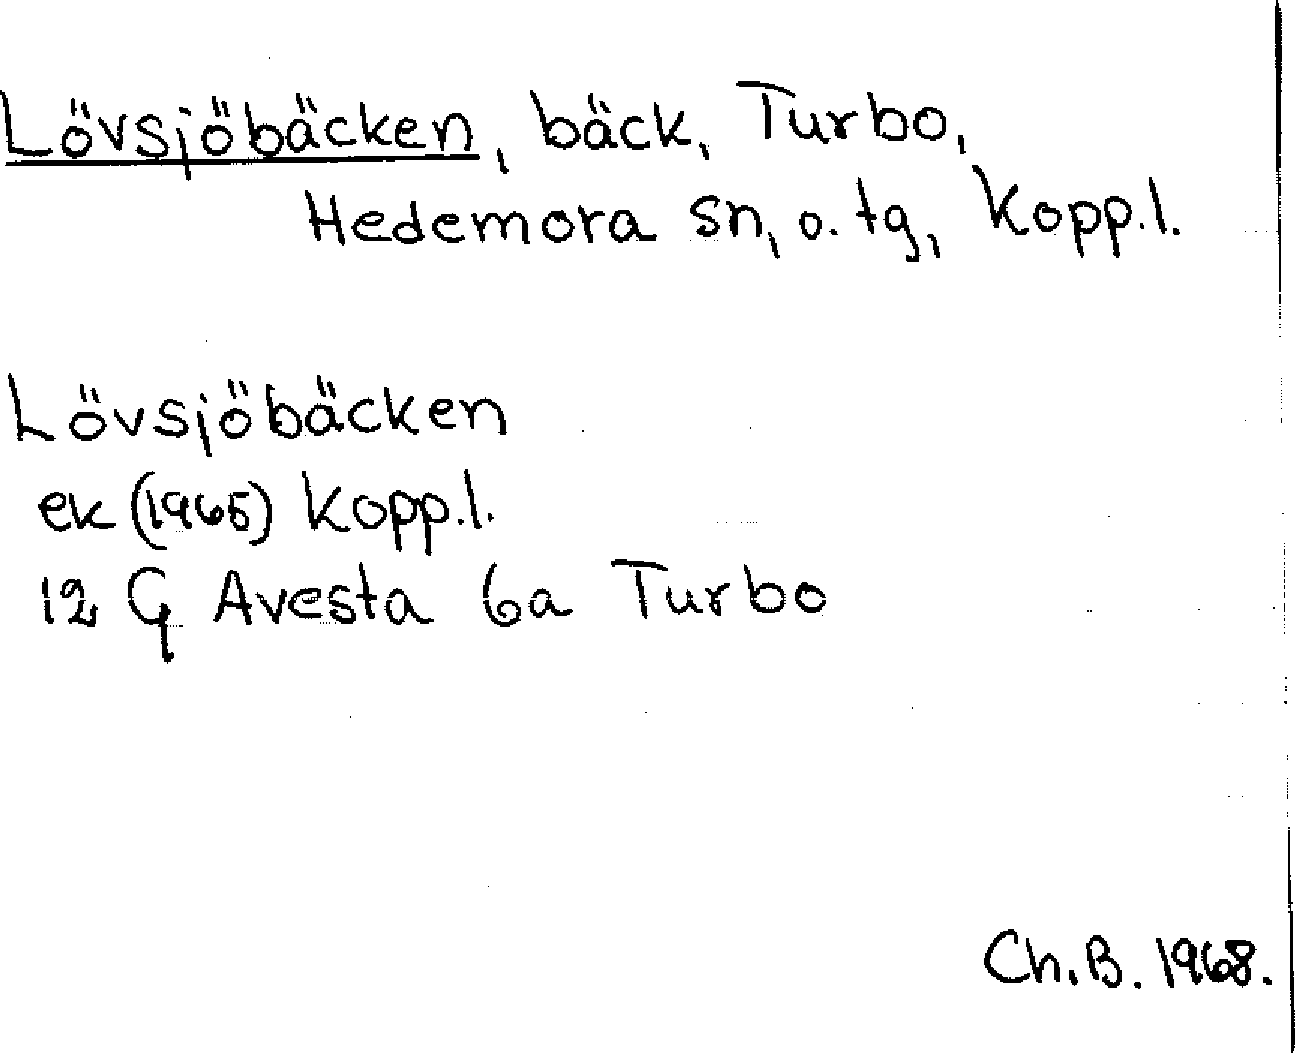 Lövsjöbäcken, bäck, Turbo,
Hedemora sn, o. tg, Kopp.l.
Lövsjöbäcken
ek (1965) Kopp.l.
12 G Avesta 6a Turbo
Ch.B. 1968.